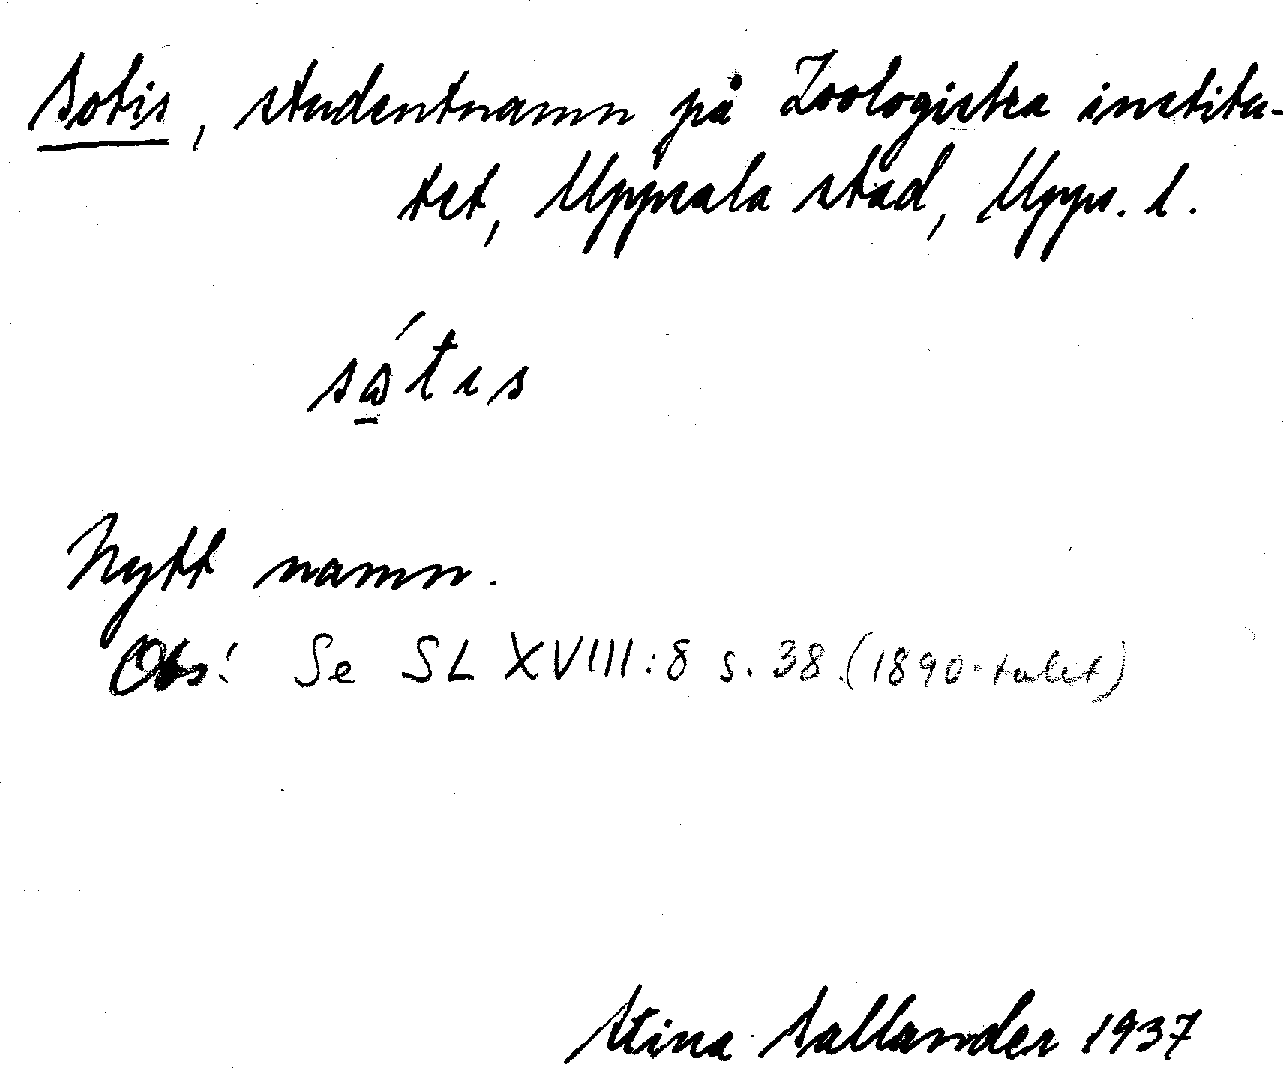 Sotis, studentnamn på Zoologiska institu-
tet, Uppsala stad, Upps. l.
sώ̲tιs
Nytt namn.
Obs! Se SL XVIII:8 s. 38 (1890-talet)
Stina Sallander 1937